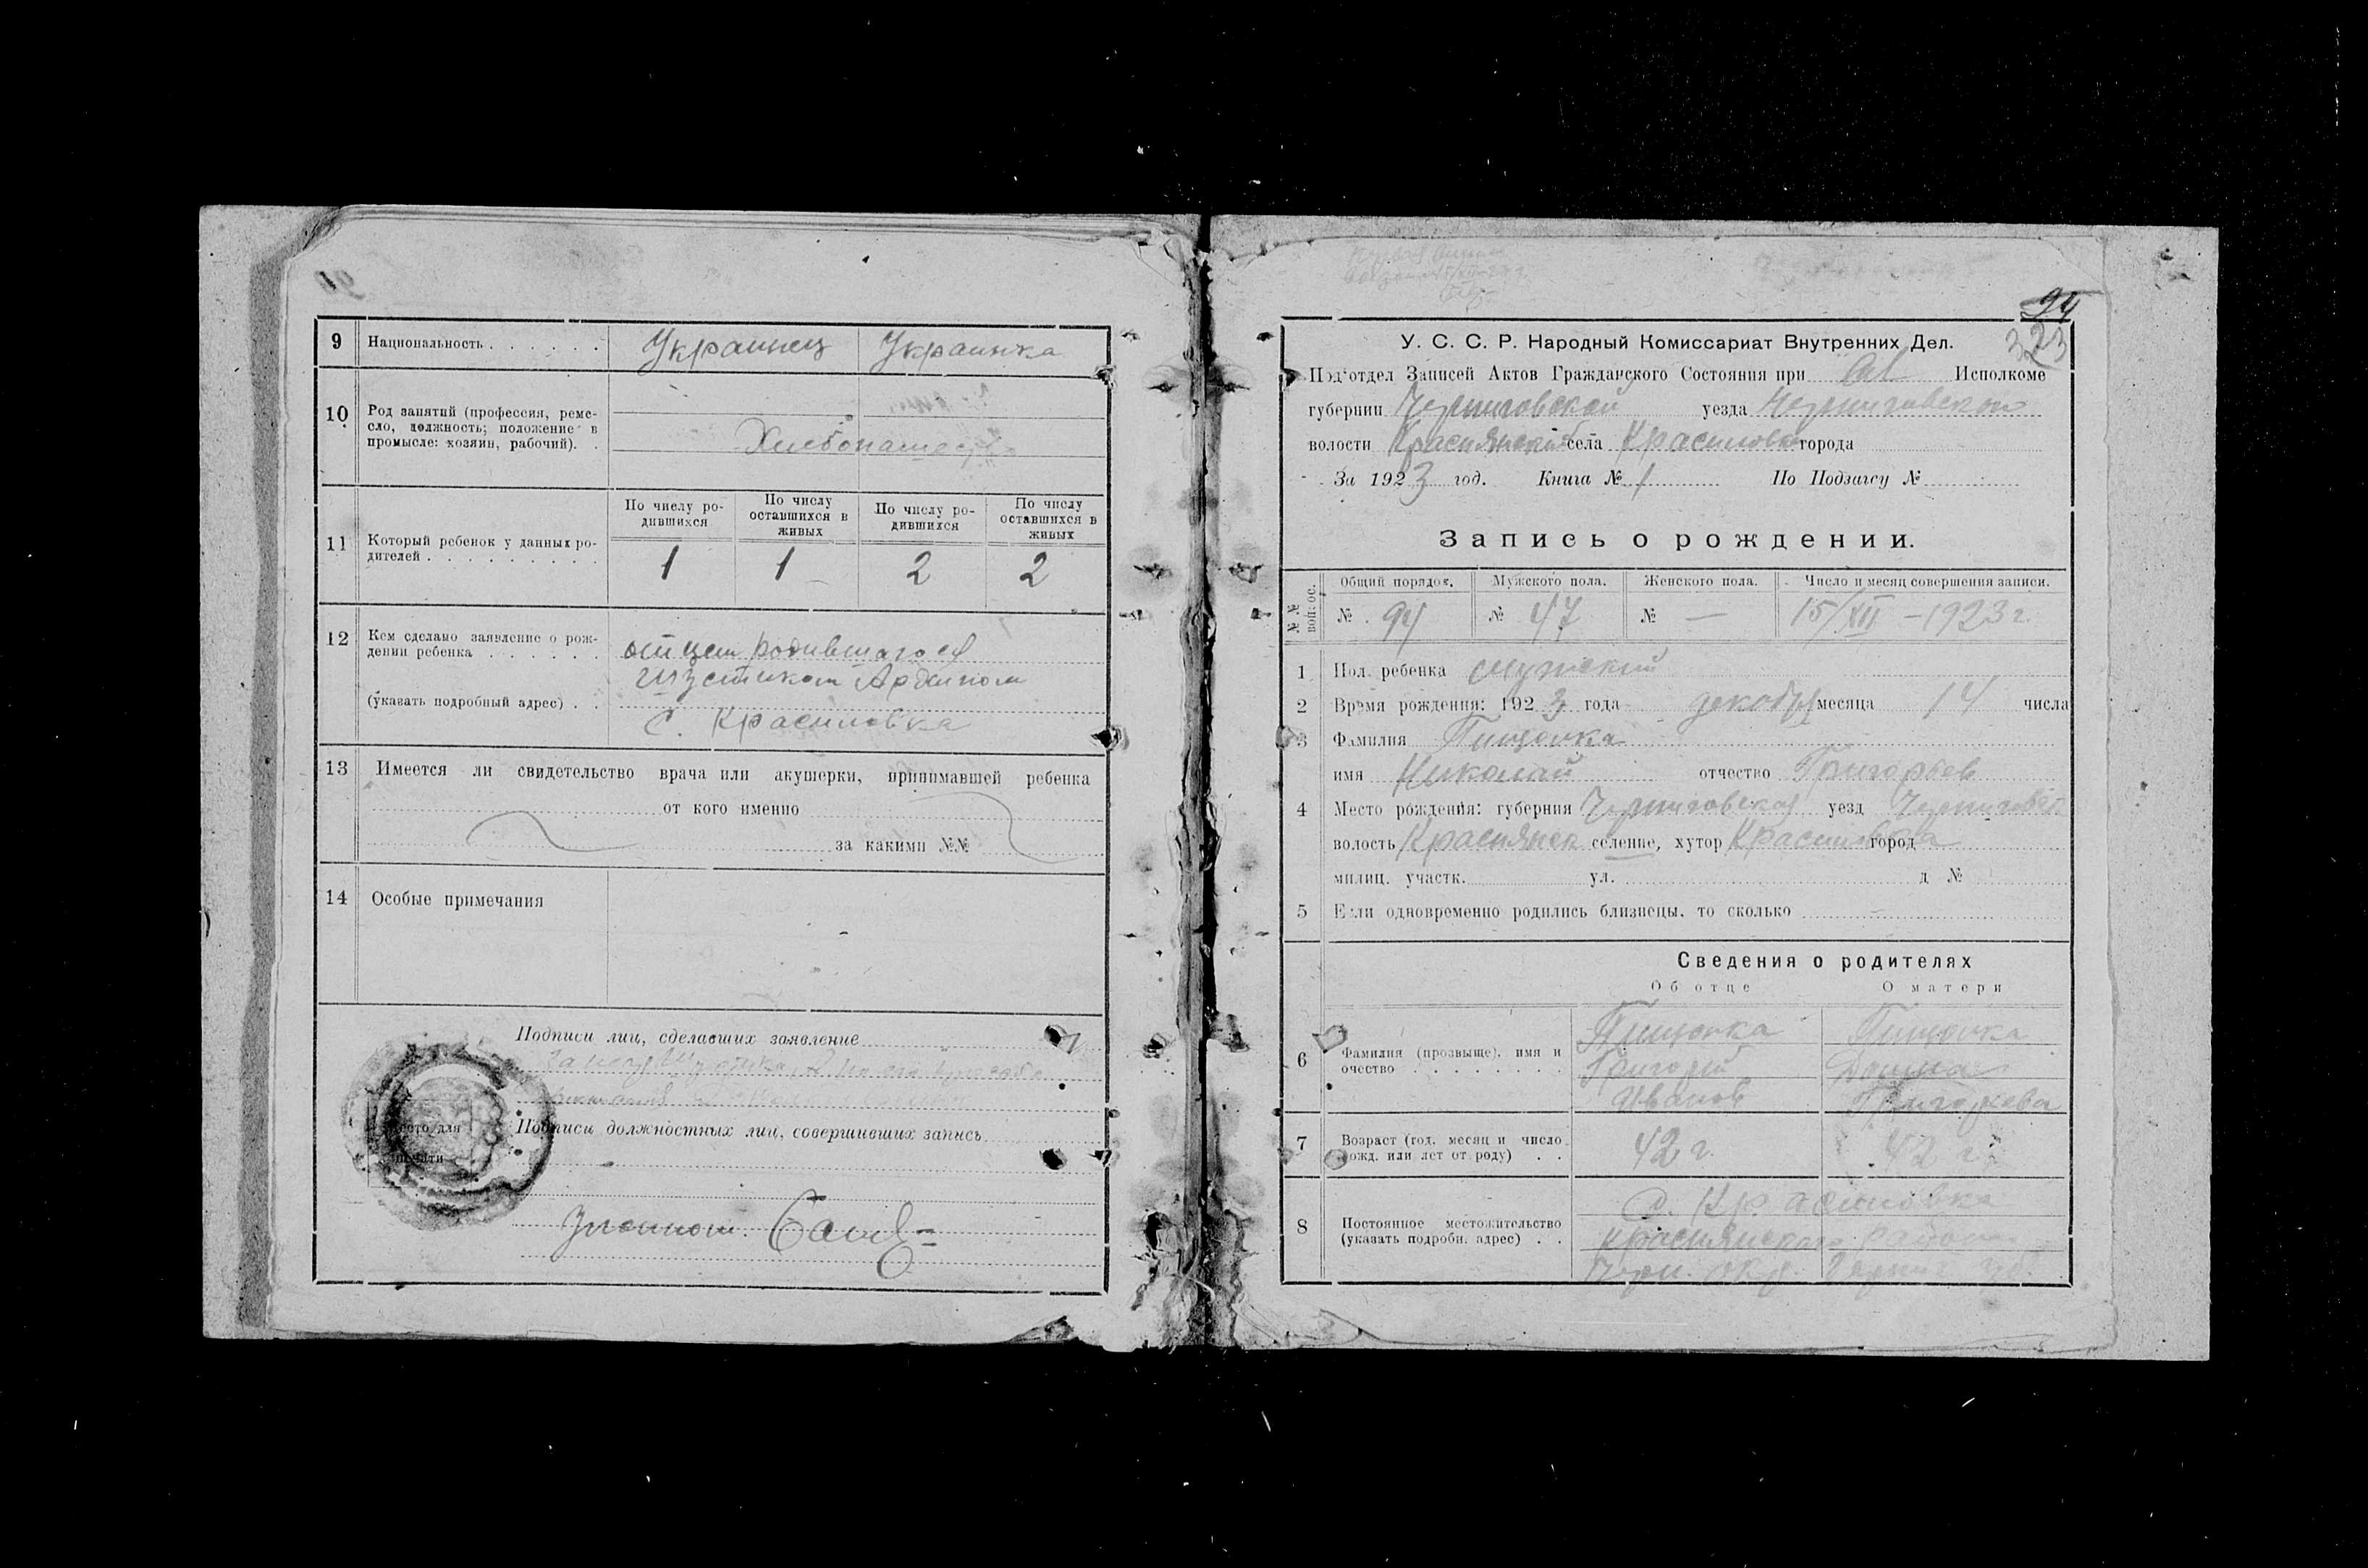 9 Национальность Украинец Украинка
10 Род занятий (профессия, реме-
сло, должность; положение в
промысле: хозяин, рабочий).
По числу ро-
дившихся
По числу
оставшихся в
живых
По числу ро-
дившихся
По числу
оставшихся в
живых
11 Который ребенок у данных ро-
дителей
1 1 2 2
12 Кем сделано заявление о рож-
дении ребенка отцем родившагося
(указать подробный адрес)
с. Красиловка
13 Имеется ли свидетельство врача или акушерки, принимавшей ребенка
от кого именно
за какими №№
14 Особые примечания
Подписи лиц, сделавших заявление
Подписи должностных лиц, совершивших запись
Место для
печати
94
323
У. С. С. Р. Народный Комиссариат Внутренних Дел.
Под‘отдел Записей Актов Гражданского Состояния при Исполкоме
губернии Черниговской уезда Черниговской
волости села Красиловки города
За 1923 год. Книга № 1 По Подзагсу №
Запись о рождении.
№№ вопрос.
Общий порядок. Мужского пола. Женского пола. Число и месяц совершения записи.
№ 94 № 47 № — 15/XII – 1923 г.
1 Пол ребенка мужский
2 Время рождения: 1923 года декабря месяца 14 числа
3 Фамилия
имя Николай отчество Григорьев
4 Место рождения: губерния Черниговская уезд Черниговск.
волость Краснянск селение, хутор Красиловка город
милиц. участк. ул. д №
5 Если одновременно родились близнецы, то сколько –
Сведения о родителях
Об отце О матери
6 Фамилия (прозвыще), имя и
очество
Григорий
Иванов Григорьева
7 Возраст (год, месяц и число
рожд. или лет от роду) 42 г. 42 г.
8 Постоянное местожительство
(указать подробн. адрес)
с. Красиловка
Краснянского района
Черн. окр. Черниг. губ.